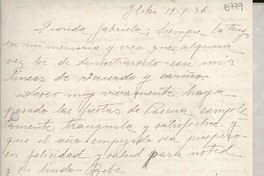 8779
19-1-36
Querida Gabriela; siempre la tengo
en mi memoria y creo que alguna
vez he de demostrarlo con mis
líneas de recuerdo y cariño.
Deseo muy vivamente haya
pasado las fiestas de Pascua comple-
tamente tranquila y satisfecha y
que el año empezado sea
en felicidad y salud para usted
y su linda